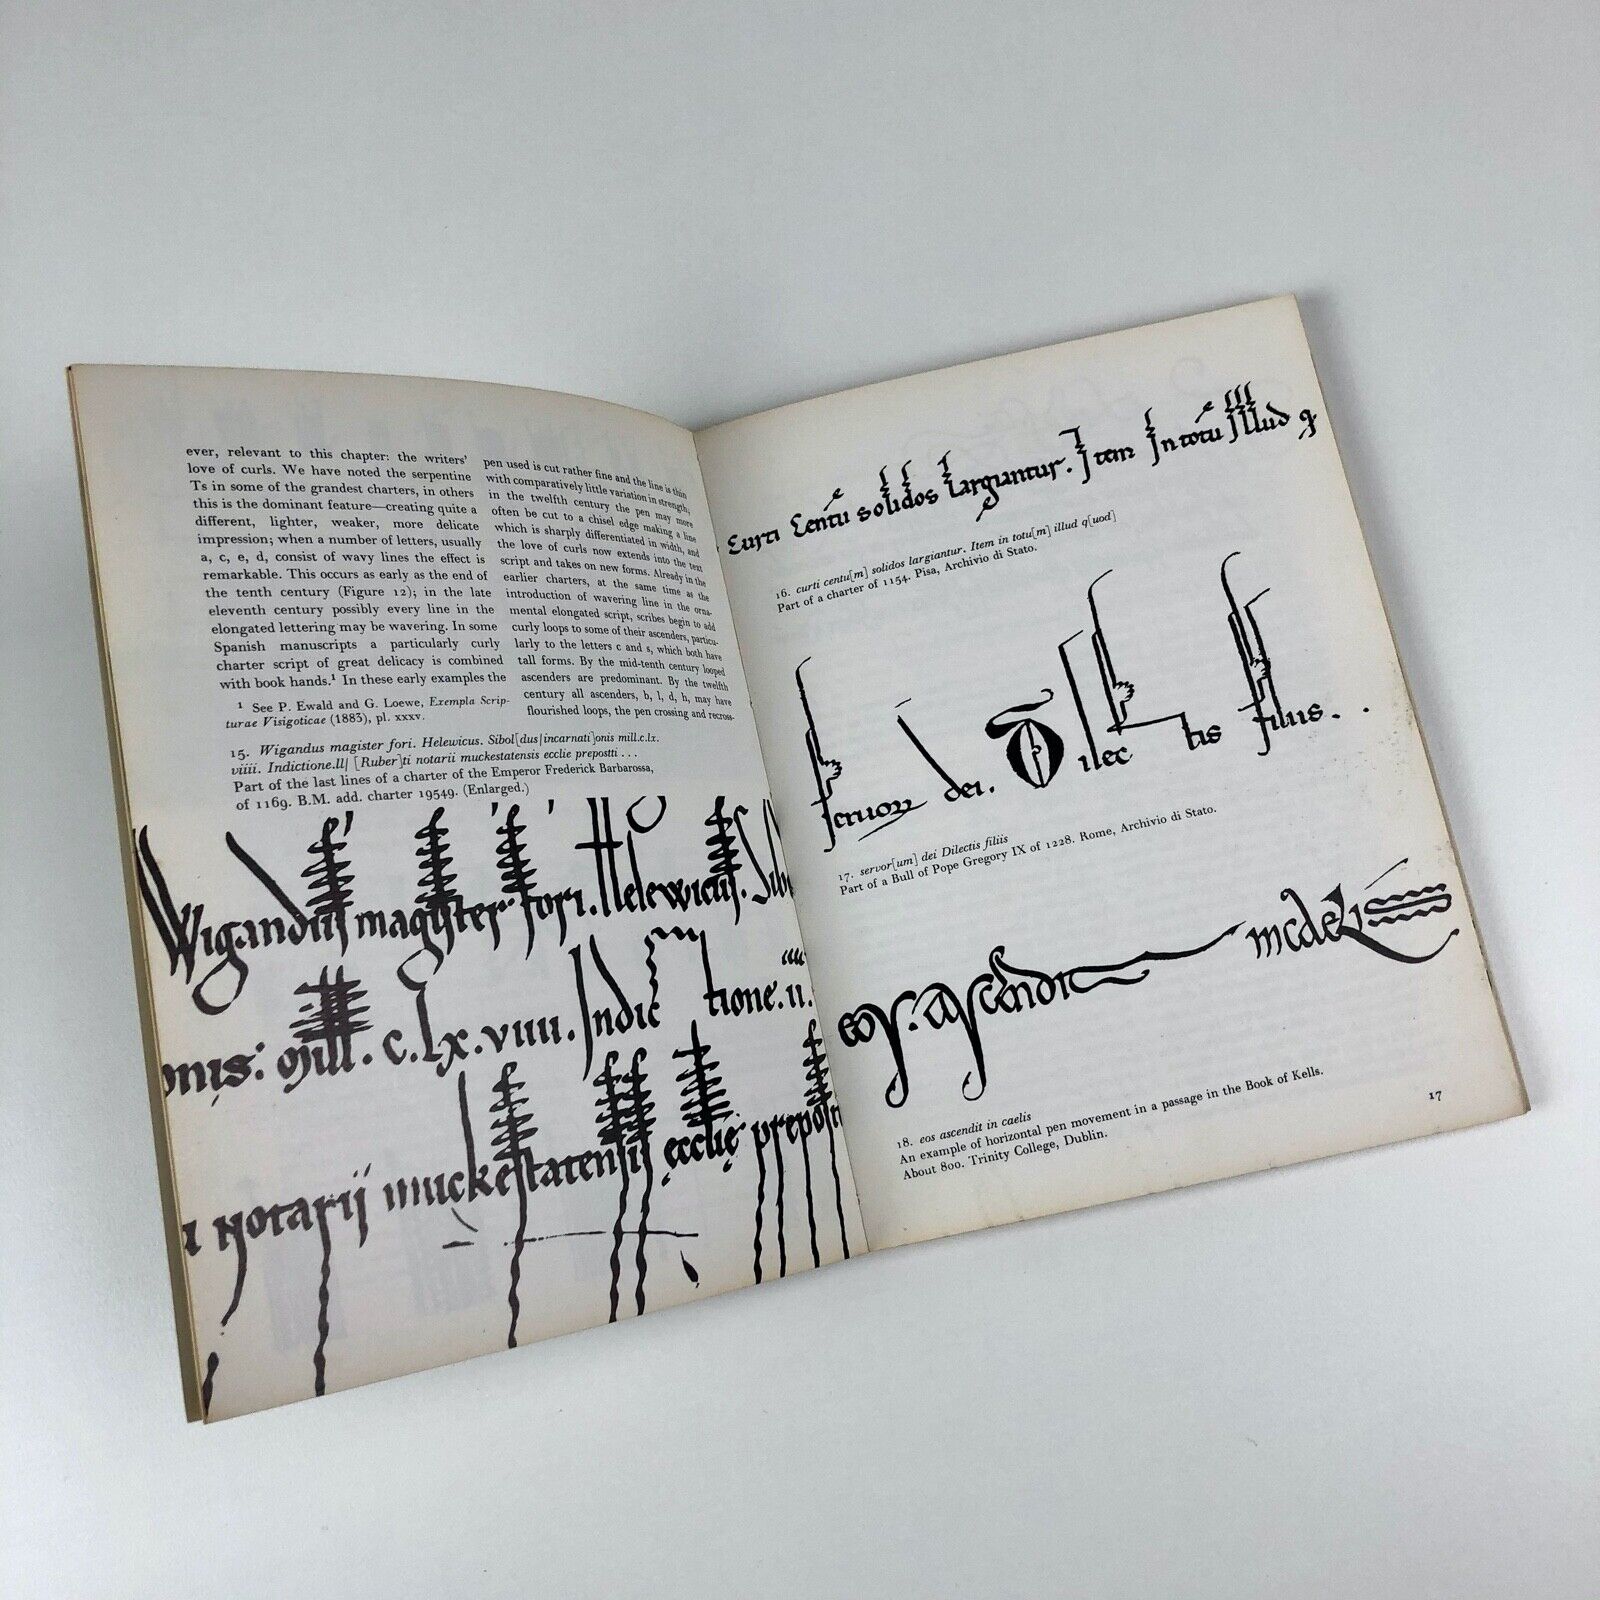 ever, relevant to this chapter: the writers'
love of curls. We have noted the serpentine
Ts in some of the grandest charters, in others
this is the dominant feature—creating quite a
different, lighter, weaker, more delicate
impression; when a number of letters, usually
a, c, e, d, consist of wavy lines the effect is
remarkable. This occurs as early as the end of
the tenth century (Figure 12); in the late
eleventh century possibly every line in the
elongated lettering may be wavering. In some
Spanish manuscripts a particularly curly
charter script of great delicacy is combined
with book hands.¹ In these early examples the
¹ See P. Ewald and G. Loewe, Exempla Scrip-
turae Visigoticae (1883), pl. xxxv.
pen used is cut rather fine and the line is thin
with comparatively little variation in strength;
in the twelfth century the pen may more
often be cut to a chisel edge making a line
which is sharply differentiated in width, and
the love of curls now extends into the text
script and takes on new forms. Already in the
earlier charters, at the same time as the
introduction of wavering line in the orna-
mental elongated script, scribes begin to add
curly loops to some of their ascenders, particu-
larly to the letters c and s, which both have
tall forms. By the mid-tenth century looped
ascenders are predominant. By the twelfth
century all ascenders, b, l, d, h, may have
flourished loops, the pen crossing and recross-
15. Wigandus magister fori. Helewicus. Sibol[dus|incarnati]onis mill.c.lx.
viiii. Indictione.ll| [Ruber]ti notarii muckestatensis ecclie prepostti . . .
Part of the last lines of a charter of the Emperor Frederick Barbarossa,
of 1169. B.M. add. charter 19549. (Enlarged.)
Wigandus magister fori. Helewicus. Sibo
onis. mill. c. lx. viiii. Indictione. ii.
i notarij muckestatensis ecclię preposti
curti centū solidos largiantur. Item In totū Illud q.
16. curti centu[m] solidos largiantur. Item in totu[m] illud q[uod]
Part of a charter of 1154. Pisa, Archivio di Stato.
servor dei. Dilectis filiis.
17. servor[um] dei Dilectis filiis
Part of a Bull of Pope Gregory IX of 1228. Rome, Archivio di Stato.
eos. ascendit
18. eos ascendit in caelis
An example of horizontal pen movement in a passage in the Book of Kells.
About 800. Trinity College, Dublin.
17